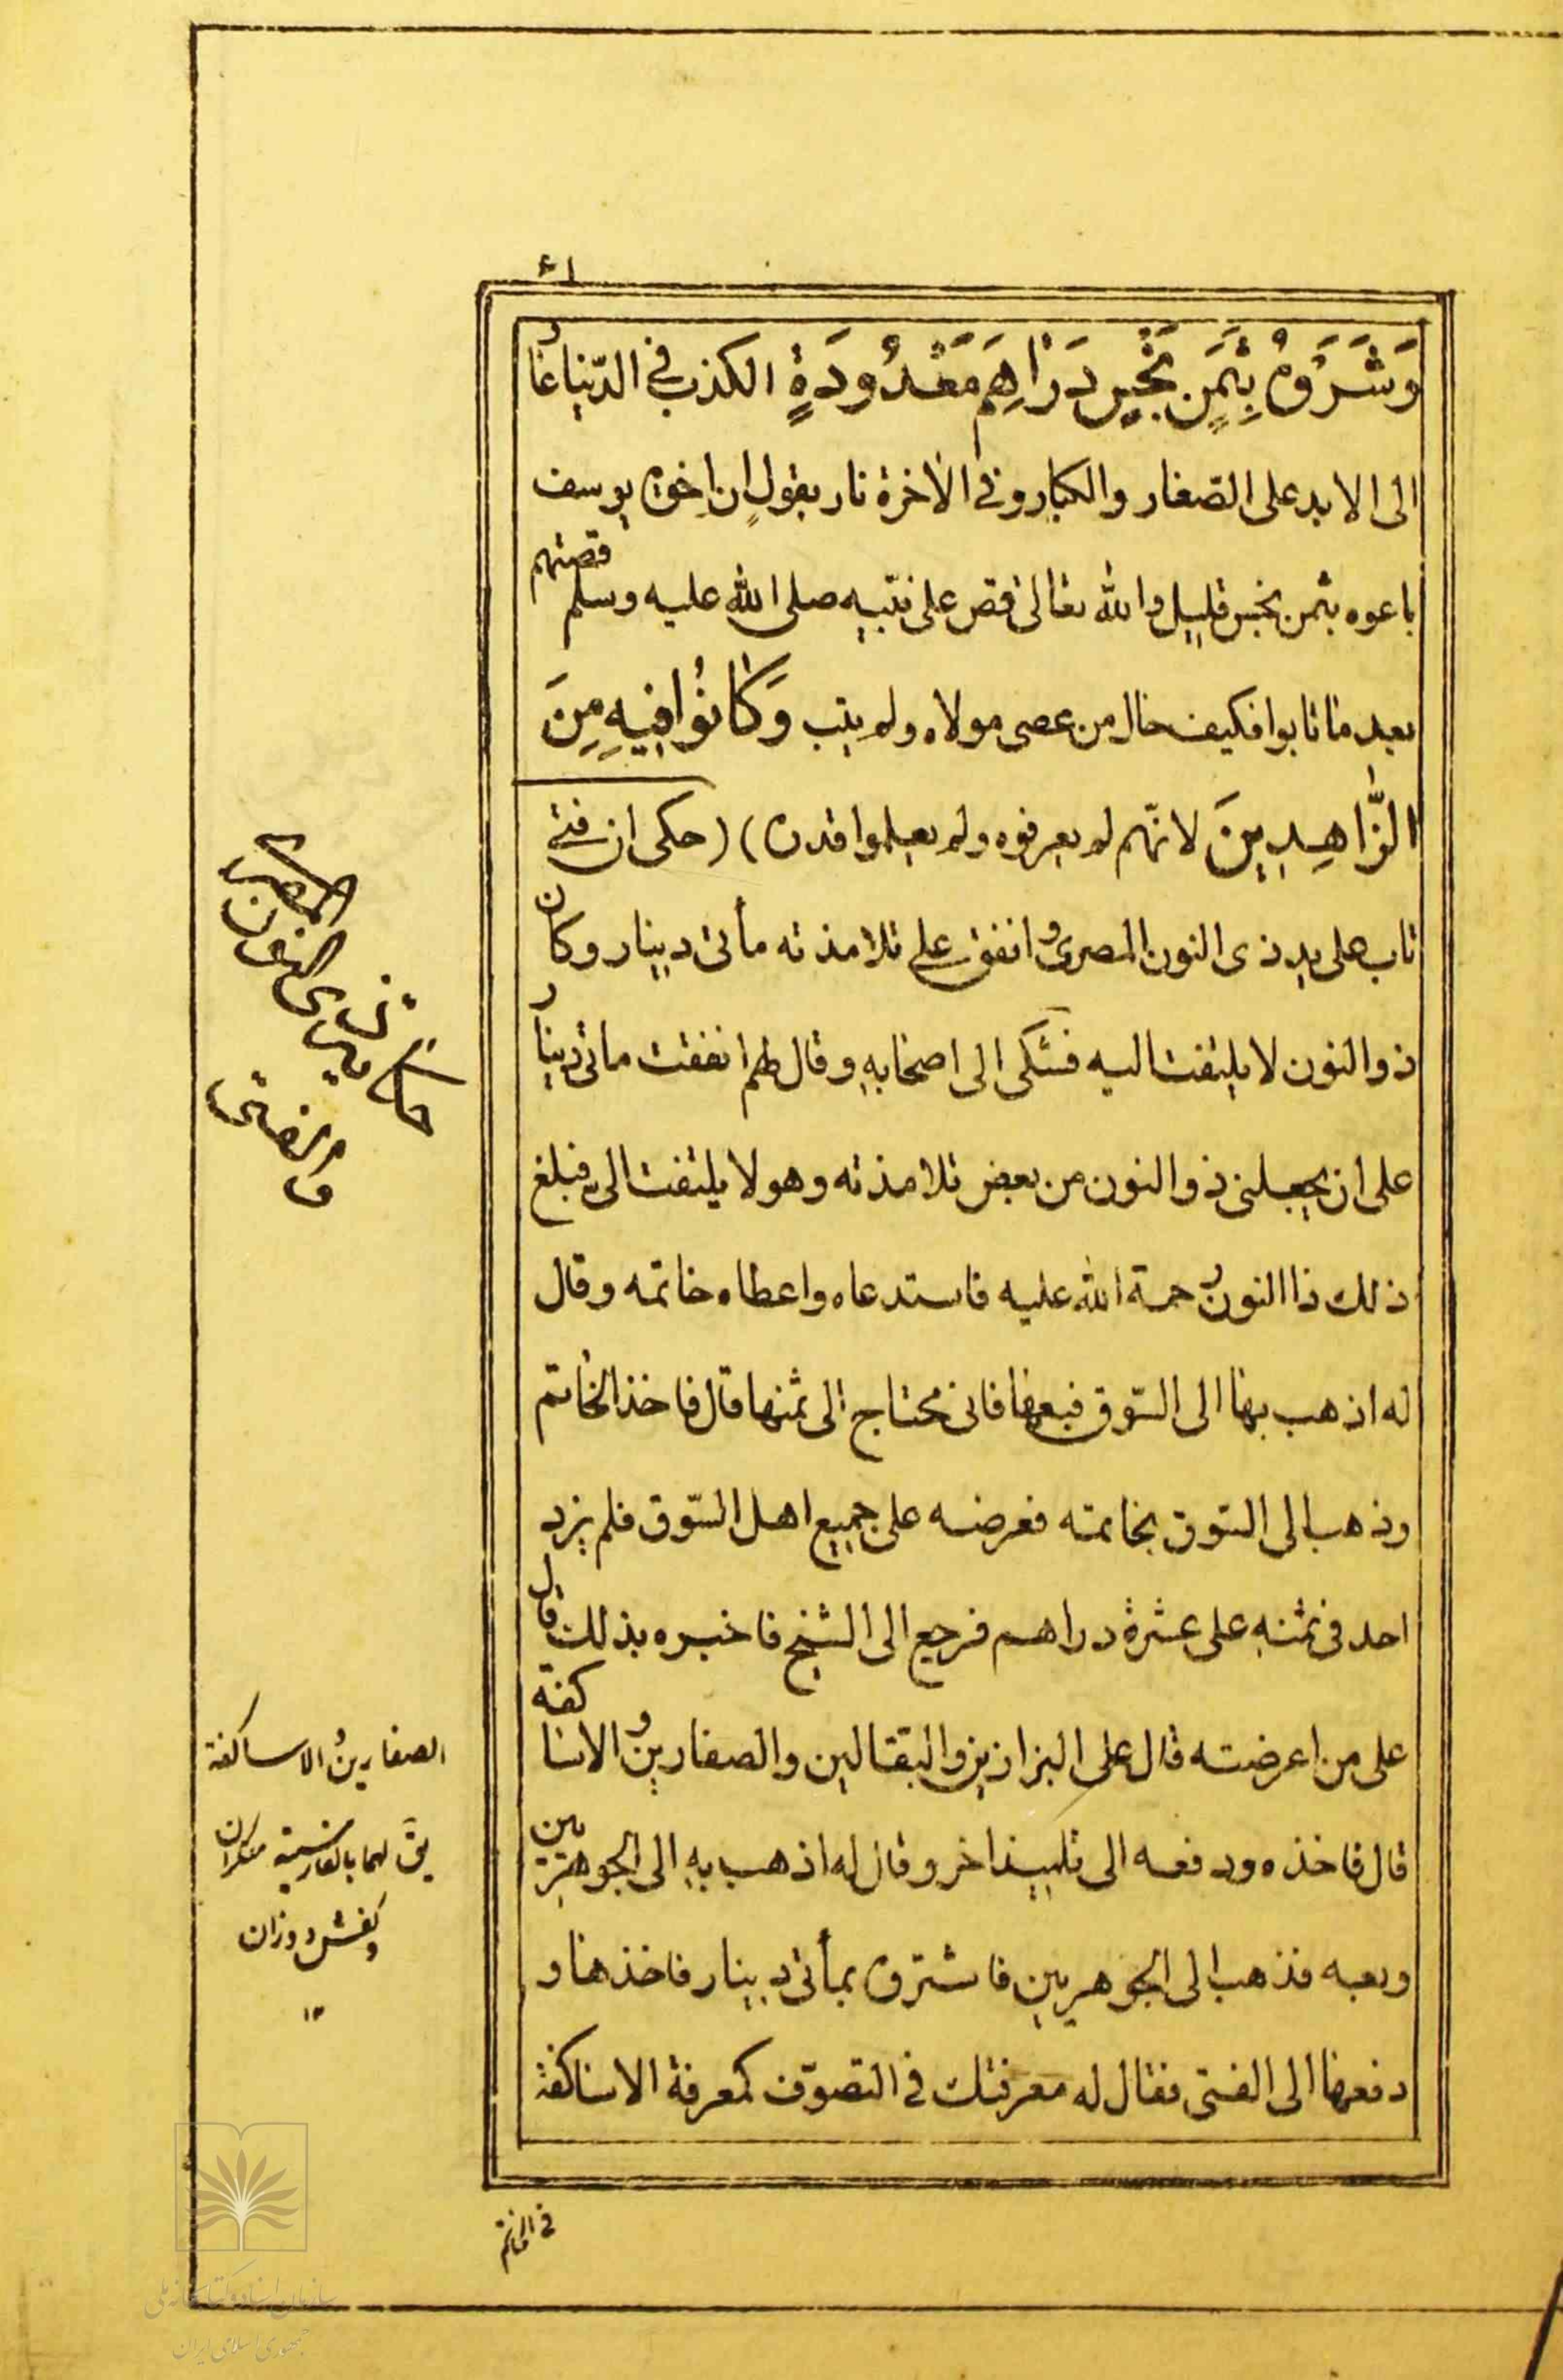 ٤١
وَشَرَوْهُ بِثَمَنٍ بَخْسٍ دَرَاهِمَ مَعْدُودَةٍ الكذب فى الدّنيا عار
الى الابد على الصّغار والكبار وفى الاخرة نار يقول ان اخوة يوسف
باعوه بثمن بخس قليل والله تعالى قص على نبيه صلى الله عليه وسلم قصتهم
بعد ما تابوا فكيف حال من عصى مولاه ولم يتب وَكَانُوا فِيهِ مِنَ
الزَّاهِدِينَ لانّهم لم يعرفوه ولم يعلموا قدره) (حكى ان فتى
تاب على يد ذى النون المصرى وانفق على تلامذته مأتى دينار وكان
ذو النون لا يلتفت اليه فشكى الى اصحابه وقال لهم انفقت مأتى دينار
على ان يجعلنى ذو النون من بعض تلامذته وهو لا يلتفت الى فبلغ
ذلك ذا النون رحمة الله عليه فاستدعاه واعطاه خاتمه وقال
له اذهب بها الى السّوق فبعها فانى محتاج الى ثمنها قال فاخذ الخاتم
وذهب الى السّوق بخاتمه فعرضه على جميع اهل السّوق فلم يزد
احد فى ثمنه على عشرة دراهم فرجع الى الشيخ فاخبره بذلك قال
على من اعرضته قال على البزازين والبقالين والصفارين والاساكفة
قال فاخذه ودفعه الى تلميذ اخر وقال له اذهب به الى الجوهريين
وبعه فذهب الى الجوهريين فاشتروه بمأتى دينار فاخذها و
دفعها الى الفتى فقال له معرفتك فى التصوّف كمعرفة الاساكفة
فى الخاتم
حكاية ذى النون المصرى
والفتى
الصفارين والاساكفة
يق لهما بالفارسية مسگران
وكفش دوزان
١٢
سازمان اسناد و کتابخانه ملی
جمهوری اسلامی ایران